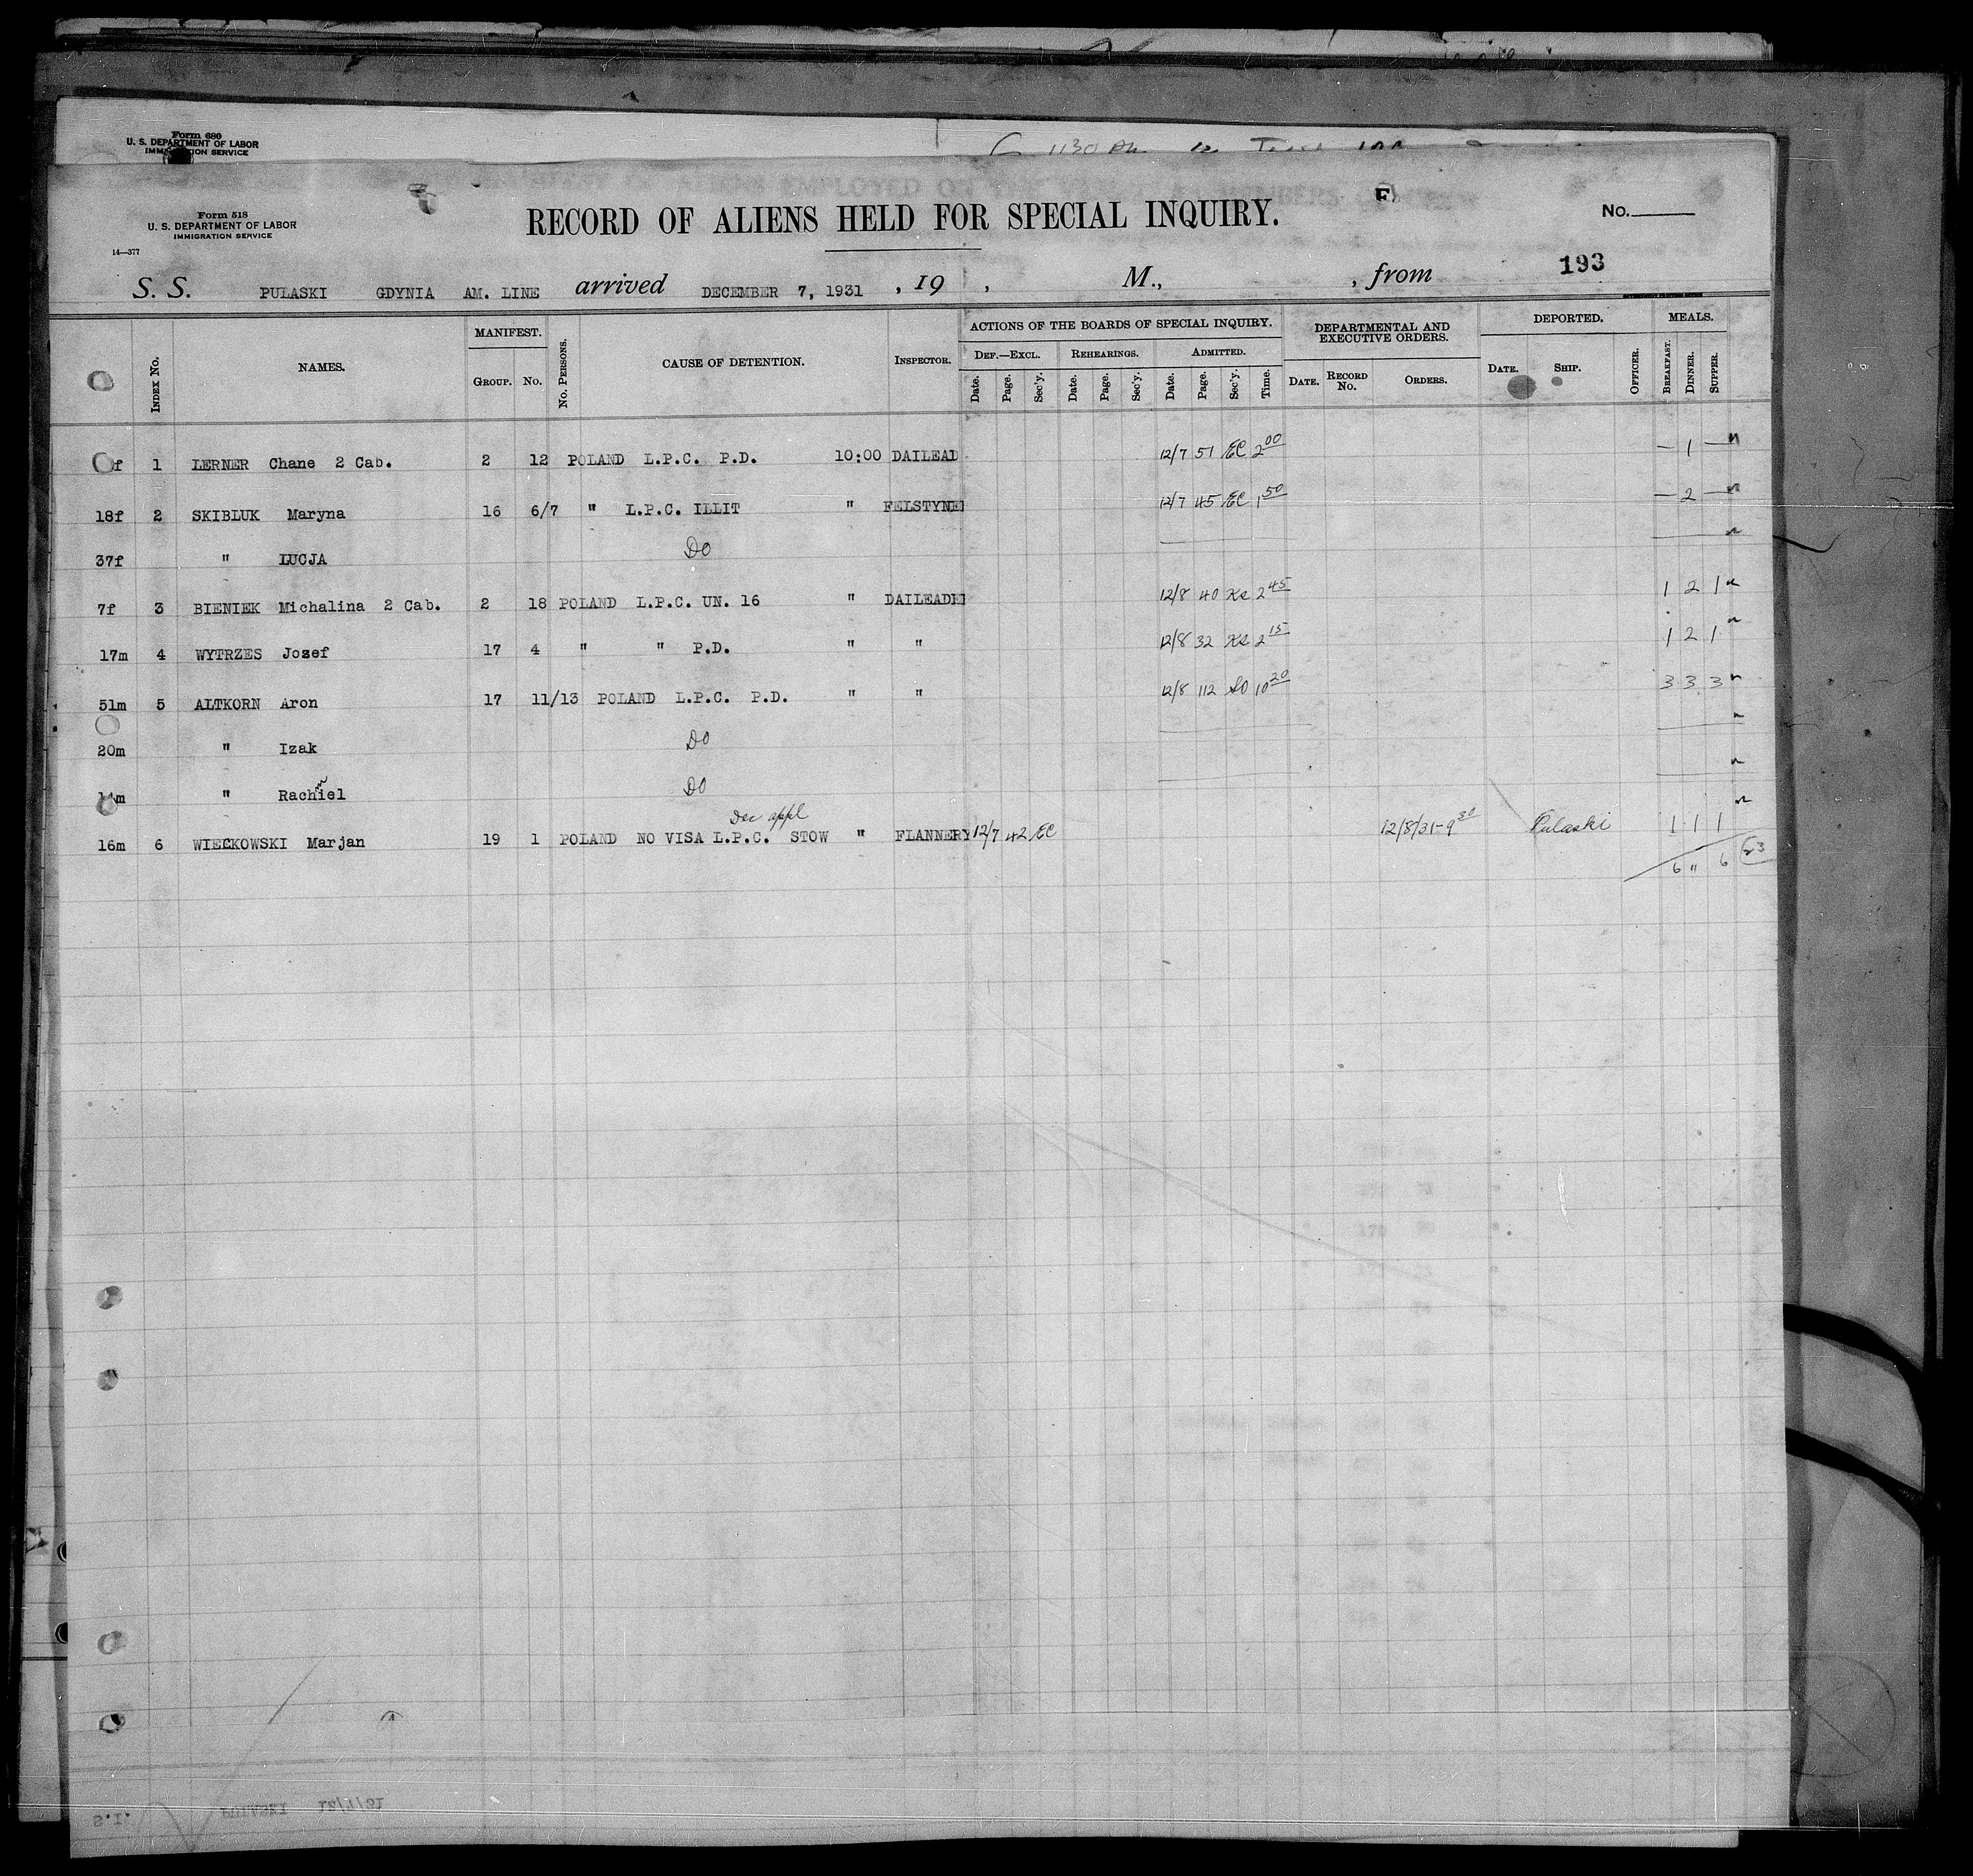 Form 680
U. S. DEPARTMENT OF LABOR
IMMIGRATION SERVICE
Form 518
U. S. DEPARTMENT OF LABOR
IMMIGRATION SERVICE
14—377
RECORD OF ALIENS HELD FOR SPECIAL INQUIRY.
F
No.
193
S. S. PULASKI GDYNIA AM. LINE arrived DECEMBER 7, 1931 , 19 , M., , from
INDEX No. NAMES. MANIFEST. GROUP. No. No. PERSONS. CAUSE OF DETENTION. INSPECTOR. ACTIONS OF THE BOARDS OF SPECIAL INQUIRY. DEPARTMENTAL AND EXECUTIVE ORDERS. DEPORTED. MEALS.
DEF.—EXCL. REHEARINGS. ADMITTED.
Date. Page. Sec'y. Date. Page. Sec'y. Date. Page. Sec'y. Time. DATE. RECORD No. ORDERS. DATE. SHIP. OFFICER. BREAKFAST. DINNER. SUPPER.
f 1 LERNER Chane 2 Cab. 2 12 POLAND L.P.C. P.D. 10:00 DAILEAD 12/7 51 EC 2 00 — 1 —
18f 2 SKIBLUK Maryna 16 6/7 " L.P.C. ILLIT " FELSTYNE 12/7 45 EC 1 50 — 2 —
37f " LUCJA DO
7f 3 BIENIEK Michalina 2 Cab. 2 18 POLAND L.P.C. UN. 16 " DAILEADE 12/8 40 2 45 1 2 1
17m 4 WYTRZES Josef 17 4 " " P.D. " " 12/8 32 2 15 1 2 1
51m 5 ALTKORN Aron 17 11/13 POLAND L.P.C. P.D. " " 12/8 112 10 20 3 3 3
20m " Izak DO
14m " Rachmiel DO
Dec appl
16m 6 WIECKOWSKI Marjan 19 1 POLAND NO VISA L.P.C. STOW " FLANNERY 12/7 42 EC 12/8/31-9 30 Pulaski 1 1 1
6 11 6 23
S.I. PULASKI 12/7/31